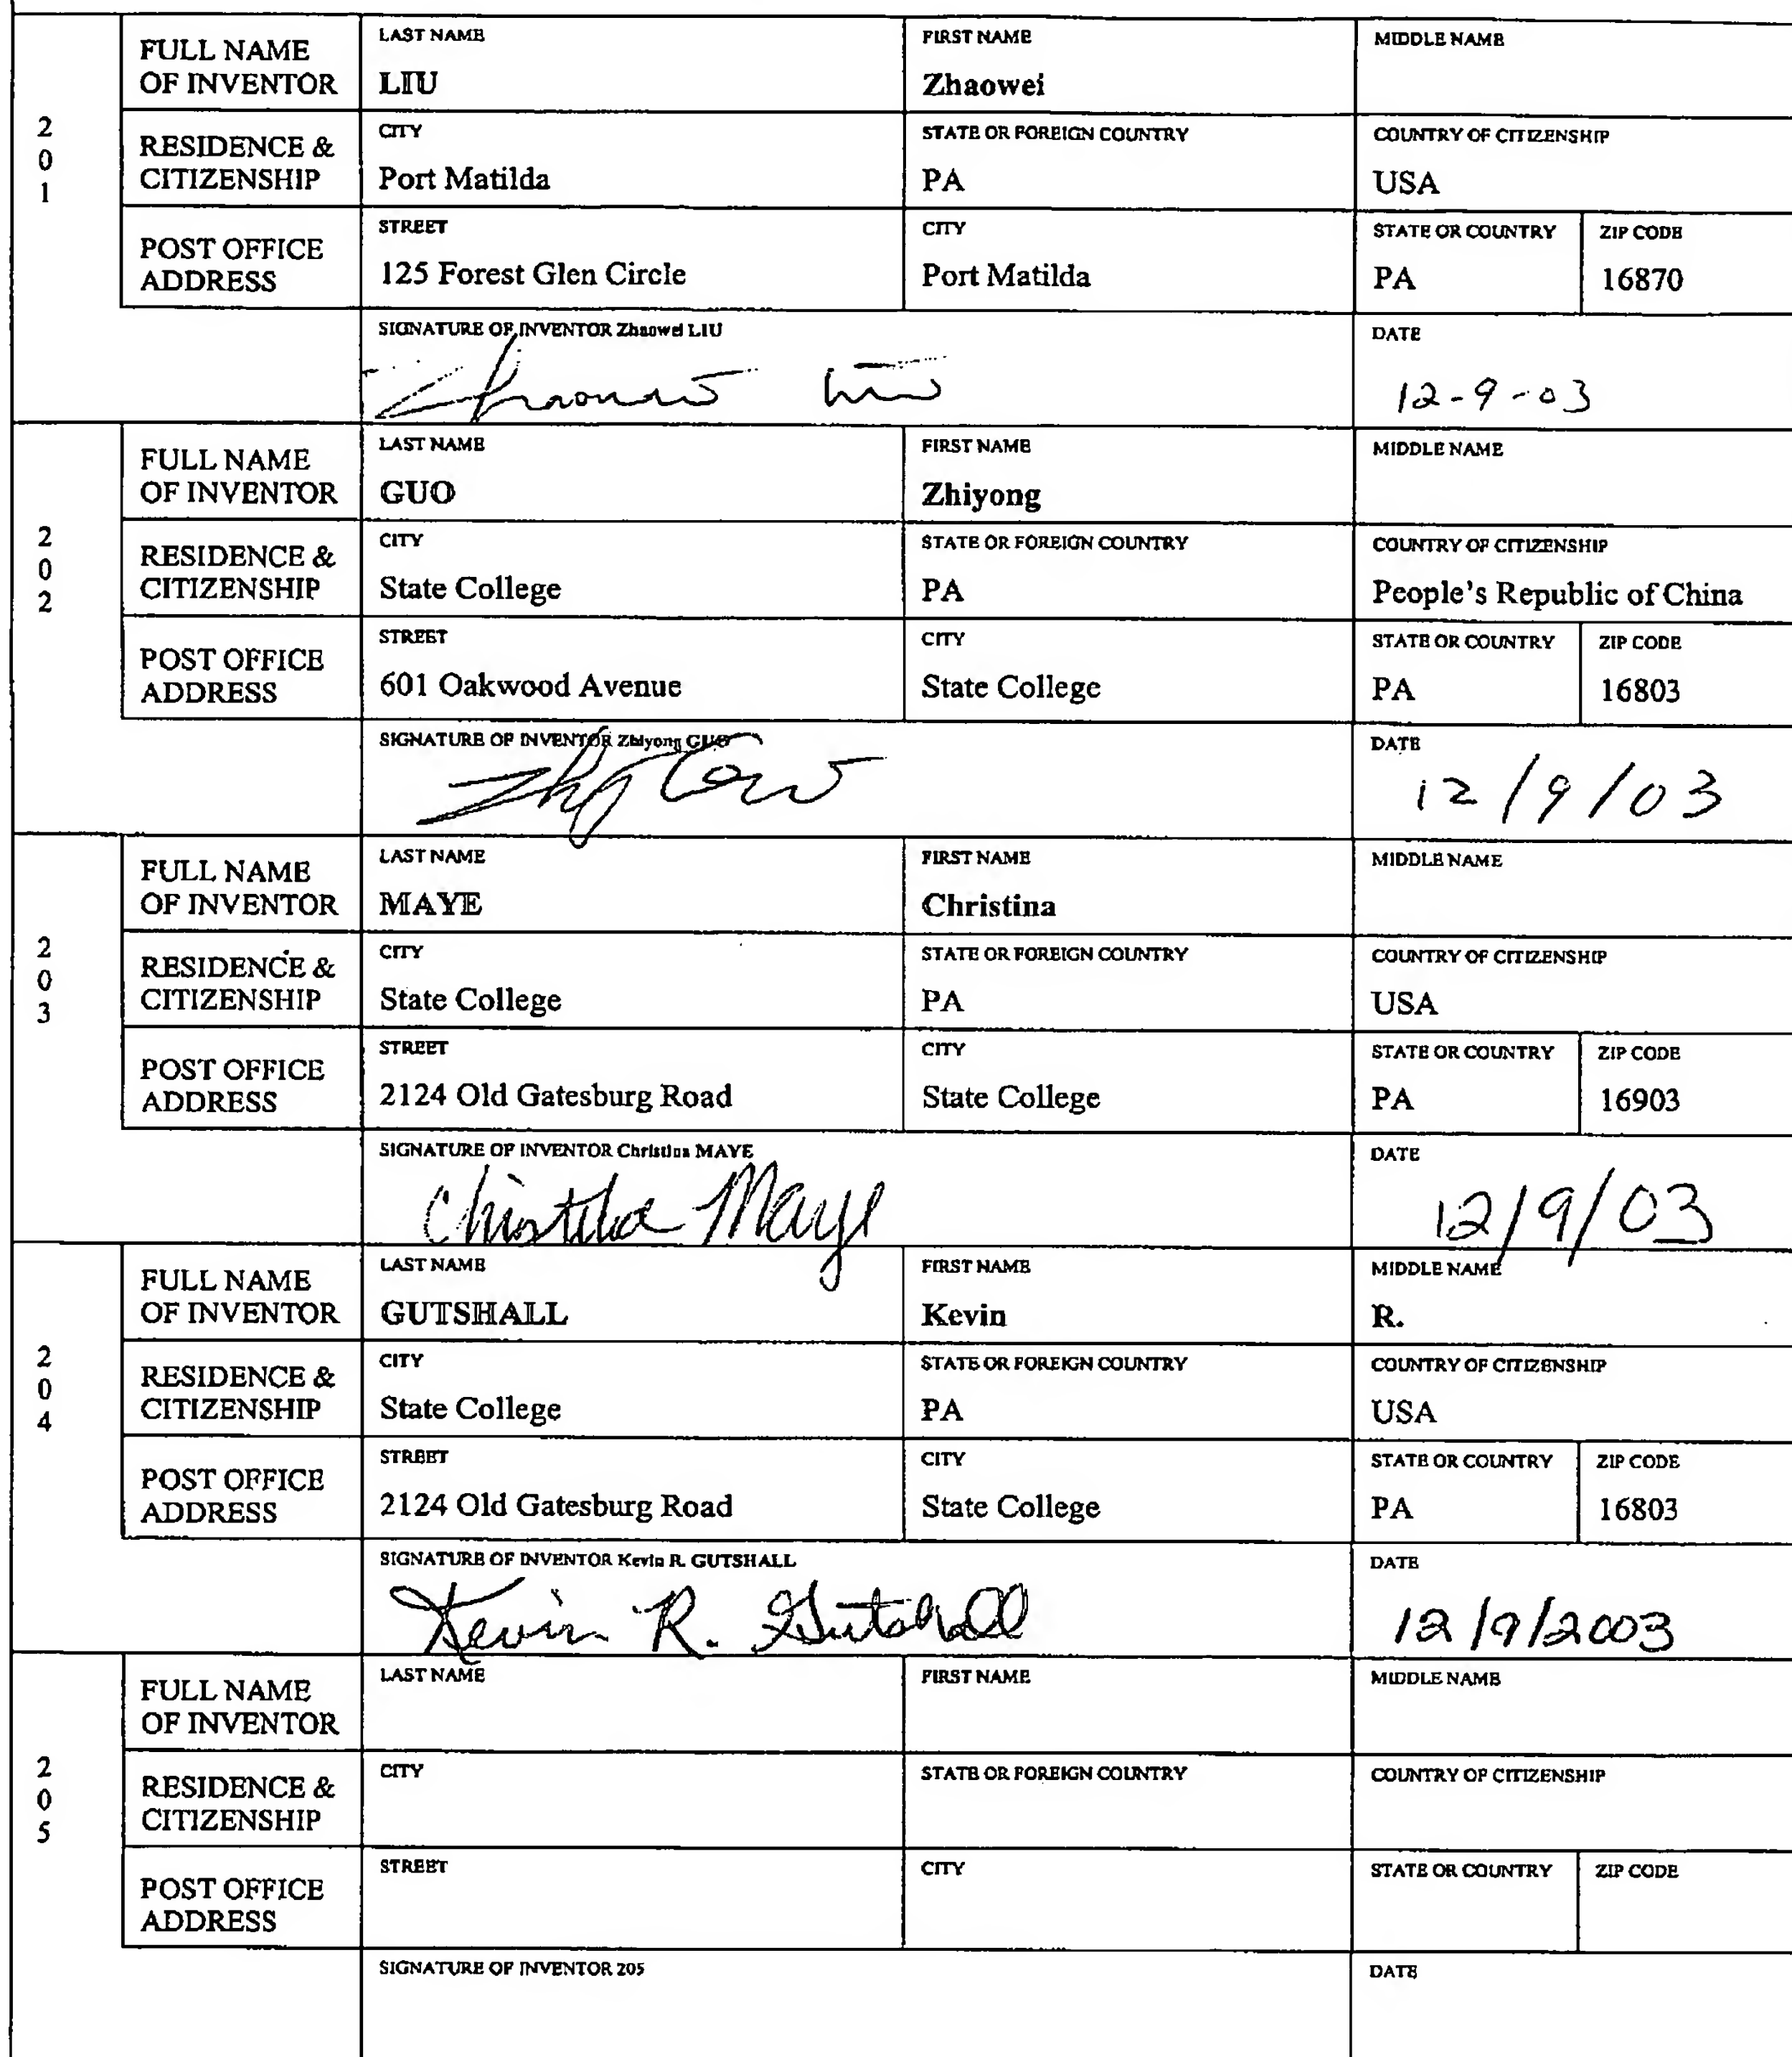 201
FULL NAME OF INVENTOR
LAST NAME
LIU
FIRST NAME
Zhaowei
MIDDLE NAME
RESIDENCE & CITIZENSHIP
CITY
Port Matilda
STATE OR FOREIGN COUNTRY
PA
COUNTRY OF CITIZENSHIP
USA
POST OFFICE ADDRESS
STREET
125 Forest Glen Circle
CITY
Port Matilda
STATE OR COUNTRY
PA
ZIP CODE
16870
SIGNATURE OF INVENTOR Zhaowei LIU
Zhaowei Liu
DATE
12-9-03
202
FULL NAME OF INVENTOR
LAST NAME
GUO
FIRST NAME
Zhiyong
MIDDLE NAME
RESIDENCE & CITIZENSHIP
CITY
State College
STATE OR FOREIGN COUNTRY
PA
COUNTRY OF CITIZENSHIP
People's Republic of China
POST OFFICE ADDRESS
STREET
601 Oakwood Avenue
CITY
State College
STATE OR COUNTRY
PA
ZIP CODE
16803
SIGNATURE OF INVENTOR Zhiyong GUO
DATE
12/9/03
203
FULL NAME OF INVENTOR
LAST NAME
MAYE
FIRST NAME
Christina
MIDDLE NAME
RESIDENCE & CITIZENSHIP
CITY
State College
STATE OR FOREIGN COUNTRY
PA
COUNTRY OF CITIZENSHIP
USA
POST OFFICE ADDRESS
STREET
2124 Old Gatesburg Road
CITY
State College
STATE OR COUNTRY
PA
ZIP CODE
16903
SIGNATURE OF INVENTOR Christina MAYE
Christina Maye
DATE
12/9/03
204
FULL NAME OF INVENTOR
LAST NAME
GUTSHALL
FIRST NAME
Kevin
MIDDLE NAME
R.
RESIDENCE & CITIZENSHIP
CITY
State College
STATE OR FOREIGN COUNTRY
PA
COUNTRY OF CITIZENSHIP
USA
POST OFFICE ADDRESS
STREET
2124 Old Gatesburg Road
CITY
State College
STATE OR COUNTRY
PA
ZIP CODE
16803
SIGNATURE OF INVENTOR Kevin R. GUTSHALL
Kevin R. Gutshall
DATE
12/9/2003
205
FULL NAME OF INVENTOR
LAST NAME
FIRST NAME
MIDDLE NAME
RESIDENCE & CITIZENSHIP
CITY
STATE OR FOREIGN COUNTRY
COUNTRY OF CITIZENSHIP
POST OFFICE ADDRESS
STREET
CITY
STATE OR COUNTRY
ZIP CODE
SIGNATURE OF INVENTOR 205
DATE